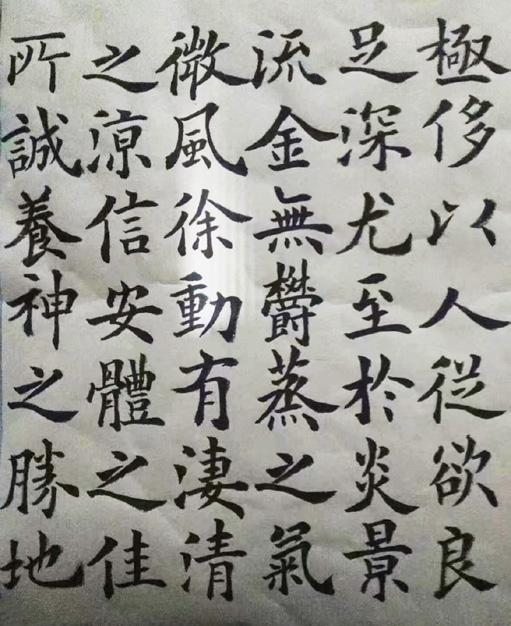 極侈以人從欲良
足深尤至於炎景
流金無欎蒸之氣
微風徐動有淒清
之涼信安體之佳
所誠養神之勝地